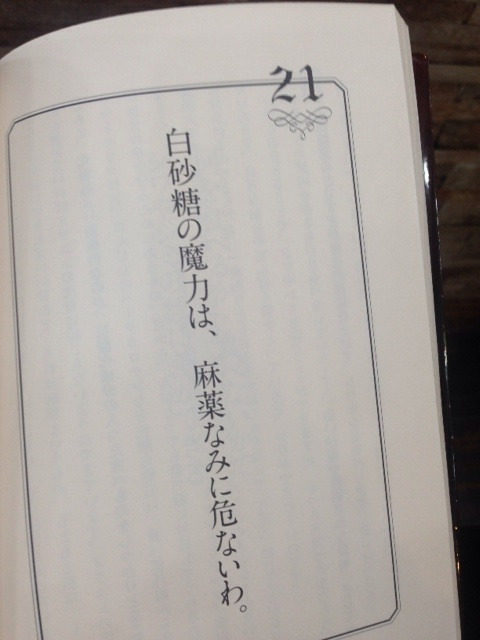 21
白砂糖の魔力は、麻薬なみに危ないわ。